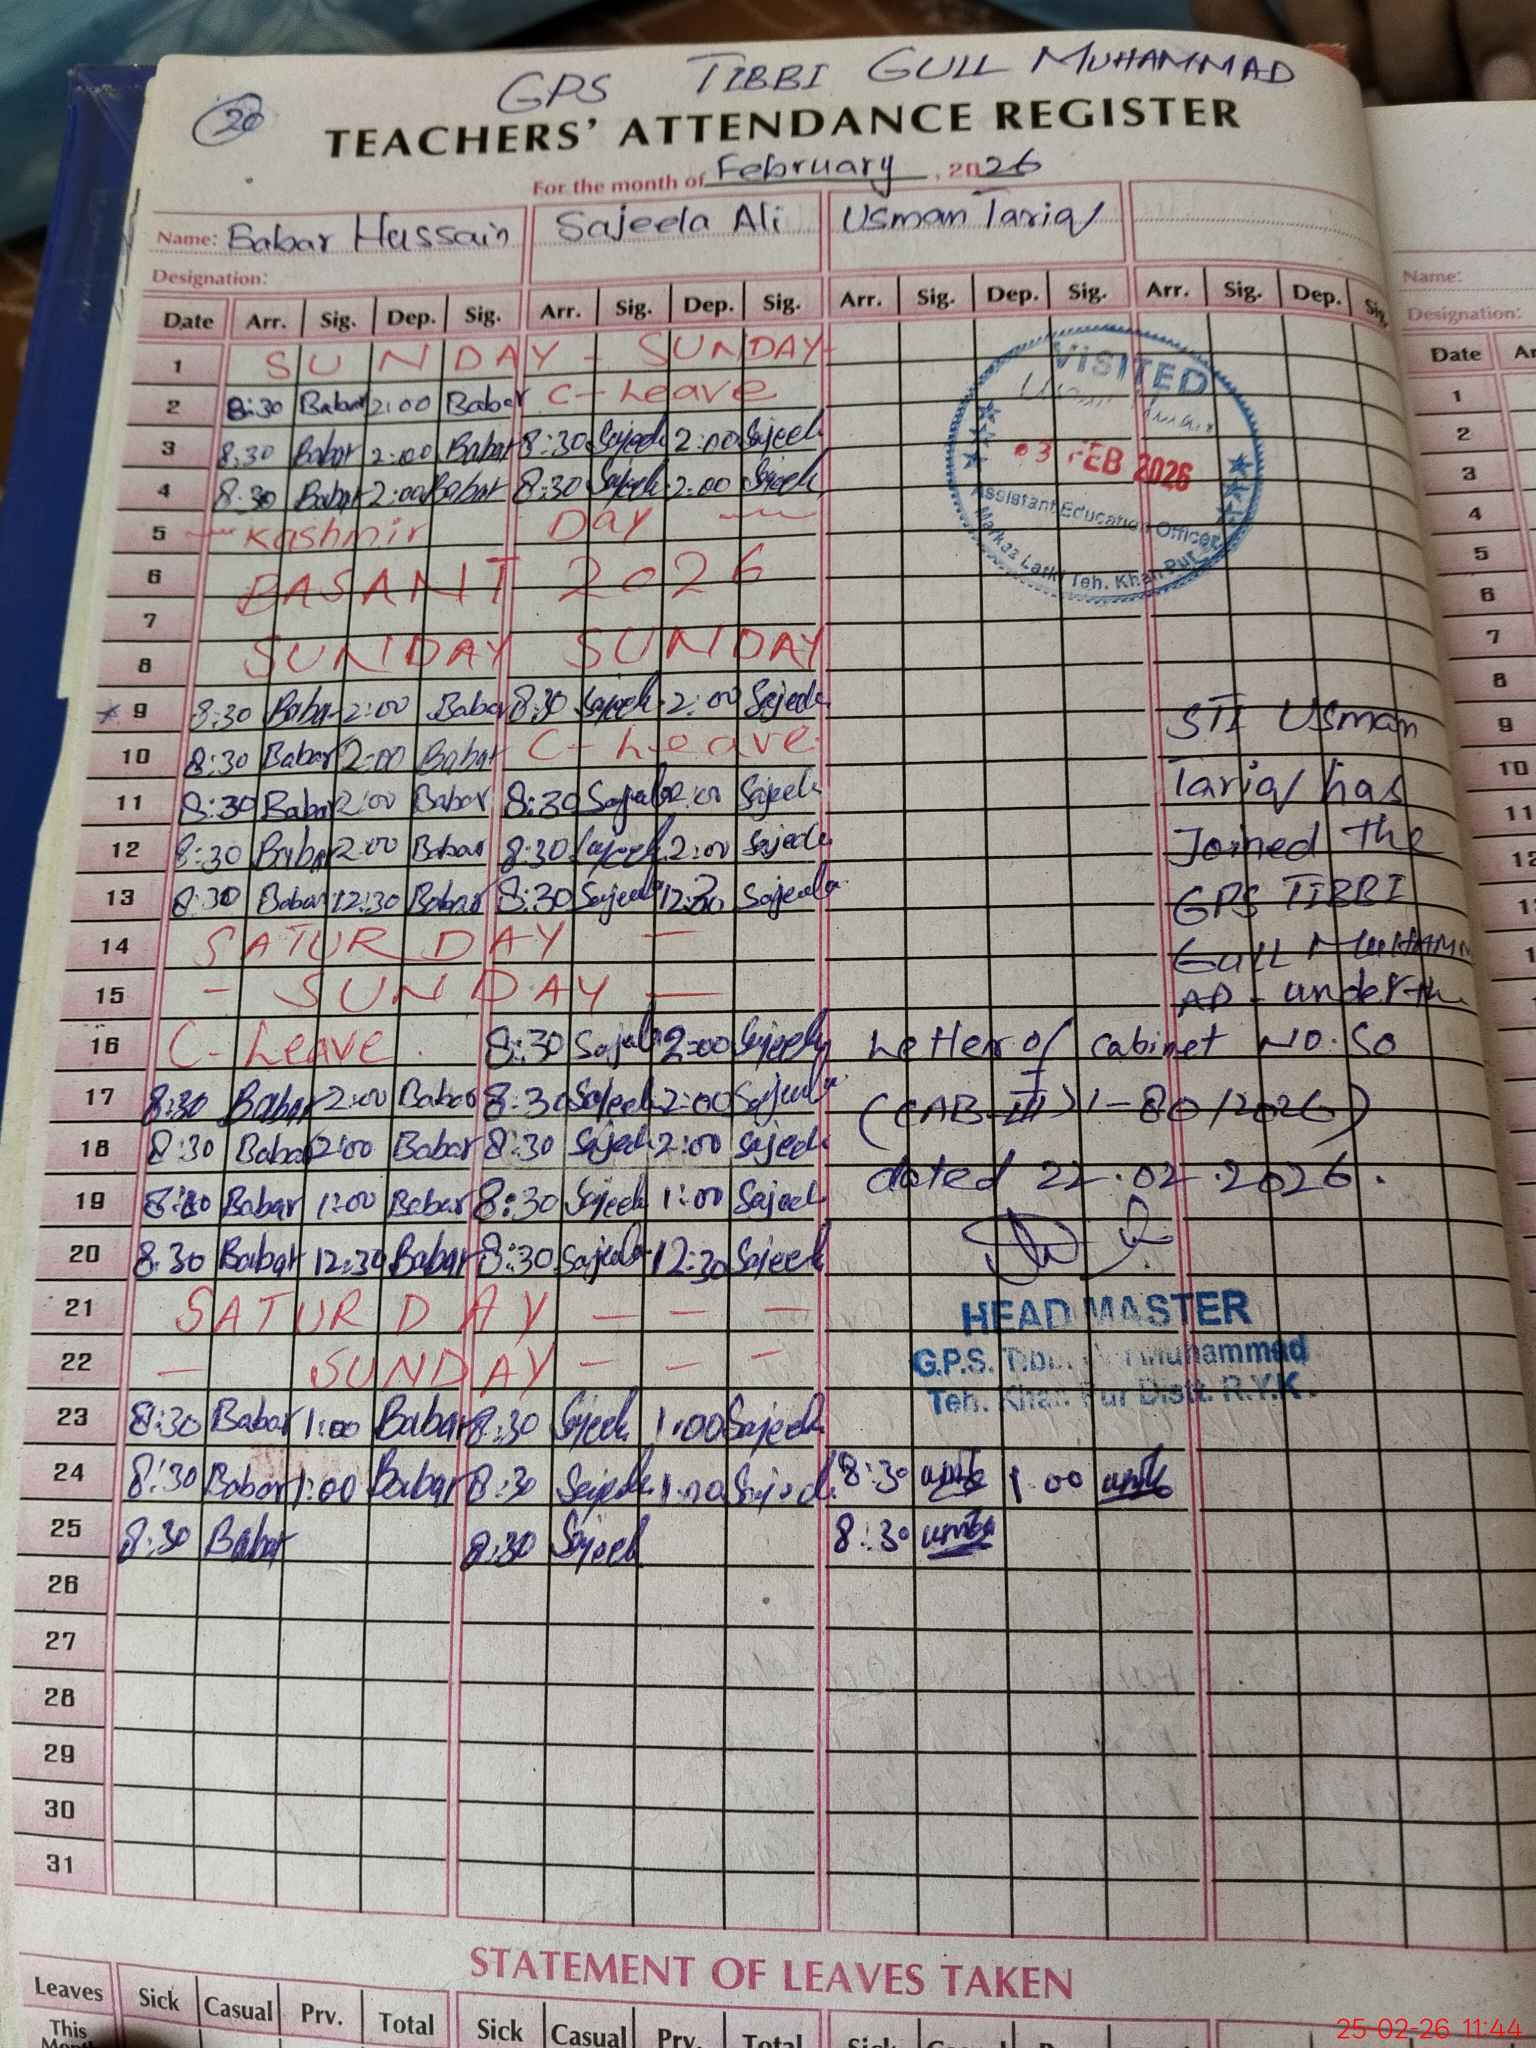 20
GPS TIBBI GULL MUHAMMAD
TEACHERS' ATTENDANCE REGISTER
For the month of February, 2026
Name: Babar Hussain Sajeela Ali Usman Tariq
Designation:
Date Arr. Sig. Dep. Sig. Arr. Sig. Dep. Sig. Arr. Sig. Dep. Sig. Arr. Sig. Dep. Sig.
1 SUNDAY - SUNDAY
2 8:30 Babar 2:00 Babar C-Leave
3 8:30 Babar 2:00 Babar 8:30 Sajeela 2:00 Sajeela
4 8:30 Babar 2:00 Babar 8:30 Sajeela 2:00 Sajeela
5 Kashmir DAY
6 BASANT 2026
7
8 SUNDAY SUNDAY
9 8:30 Babar 2:00 Babar 8:30 Sajeela 2:00 Sajeela
10 8:30 Babar 2:00 Babar C-Leave
11 8:30 Babar 2:00 Babar 8:30 Sajeela 2:00 Sajeela
12 8:30 Babar 2:00 Babar 8:30 Sajeela 2:00 Sajeela
13 8:30 Babar 12:30 Babar 8:30 Sajeela 12:30 Sajeela
14 SATURDAY -
15 - SUNDAY -
16 C-Leave 8:30 Sajeela 2:00 Sajeela
17 8:30 Babar 2:00 Babar 8:30 Sajeela 2:00 Sajeela
18 8:30 Babar 2:00 Babar 8:30 Sajeela 2:00 Sajeela
19 8:30 Babar 1:00 Babar 8:30 Sajeela 1:00 Sajeela
20 8:30 Babar 12:30 Babar 8:30 Sajeela 12:30 Sajeela
21 SATURDAY - - -
22 - SUNDAY - - -
23 8:30 Babar 1:00 Babar 8:30 Sajeela 1:00 Sajeela
24 8:30 Babar 1:00 Babar 8:30 Sajeela 1:00 Sajeela 8:30 1:00
25 8:30 Babar 8:30 Sajeela 8:30
26
27
28
29
30
31
VISITED
03 FEB 2026
Assistant Education Officer
Markaz Larki Teh. Khan Pur
STI Usman
Tariq has
Joined the
GPS TIBBI
Gull MUHAMM
AD - under the
Letter of cabinet NO. SO
(CAB-III) 1-80/2026)
dated 22.02.2026.
HEAD MASTER
G.P.S. Tibbi Muhammad
Teh. Khan Pur Distt. R.Y.K
STATEMENT OF LEAVES TAKEN
Leaves Sick Casual Prv. Total Sick Casual Prv. Total Sick
This
Month
Name:
Designation:
Date
1
2
3
4
5
6
7
8
9
10
11
12
25-02-26 11:44